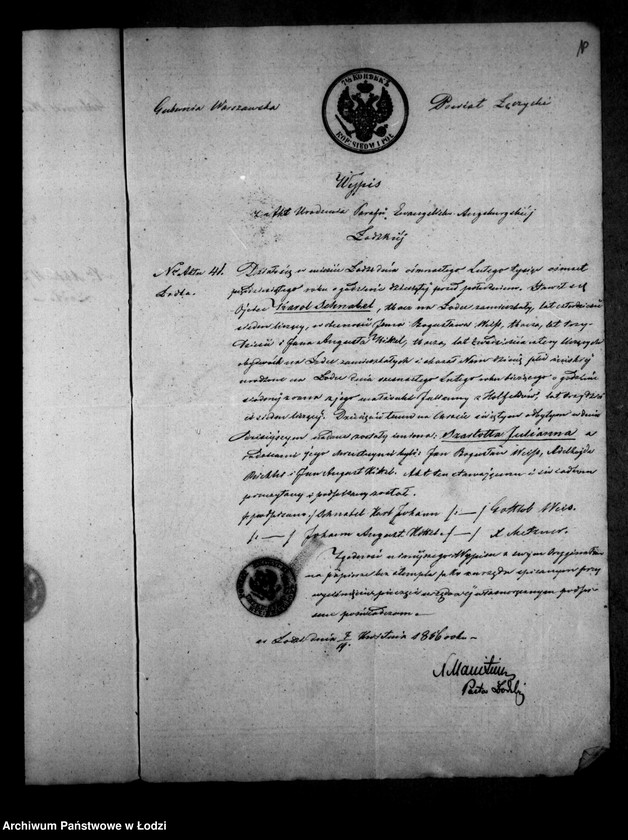 Gubernia Warszawska
7½ KOPIEJEK
KOP. SREBROM I POL
Powiat Łęczycki
Wypis
z Akt Urodzenia Parafii Ewangelicko-Augsburgskiej
Łodzkiej
No Aktu 41.
Łodka.
Działo się w mieście Łodzi dnia ósmnastego Lutego tysiąc ośmset
pięćdziesiątego roku o godzinie dziesiątej przed południem. Stawił się
Ojciec Karol Schnabel, tkacz na Łodce zamieszkały, lat czterdzieści
siedem liczący, w obecności Jana Bogusława Weiss, tkacza, lat trzy-
dzieści i Jana Augusta Hikel, tkacza, lat liczących
obydwóch na Łodce zamieszkałych i okazał Nam dziecię płci żeńskiej
urodzone na Łodce dnia Lutego roku bieżącego o godzinie
siódmej zrana z jego małżonki Julianny z lat trzydzieści
siedem liczącej. Dziecięciu temu na Chrzcie świętym odbytym w dniu
dzisiejszym nadane zostały imiona: Szarlotta Julianna a
Rodzicami jego chrzestnemi byli: Jan Bogusław Weiss, Adelhajda
i Jan August Hikel. Akt ten stawającemu i świadkom
przeczytany i podpisany został.
/podpisano/ Schnabel Karl Johann /:—/ Gottlob Weis.
/:—/ Johann August Hikel. /:—/ X Metzner.
Zgodność niniejszego Wypisu z swym Oryginałem
na papierze bez stempla jako
wyciśnięciem pieczęci urzędowej i własnoręcznym podpi-
sem poświadczam.
w Łodzi dnia Kwietnia 1856 roku
Pastor Łodzki
Archiwum Państwowe w Łodzi